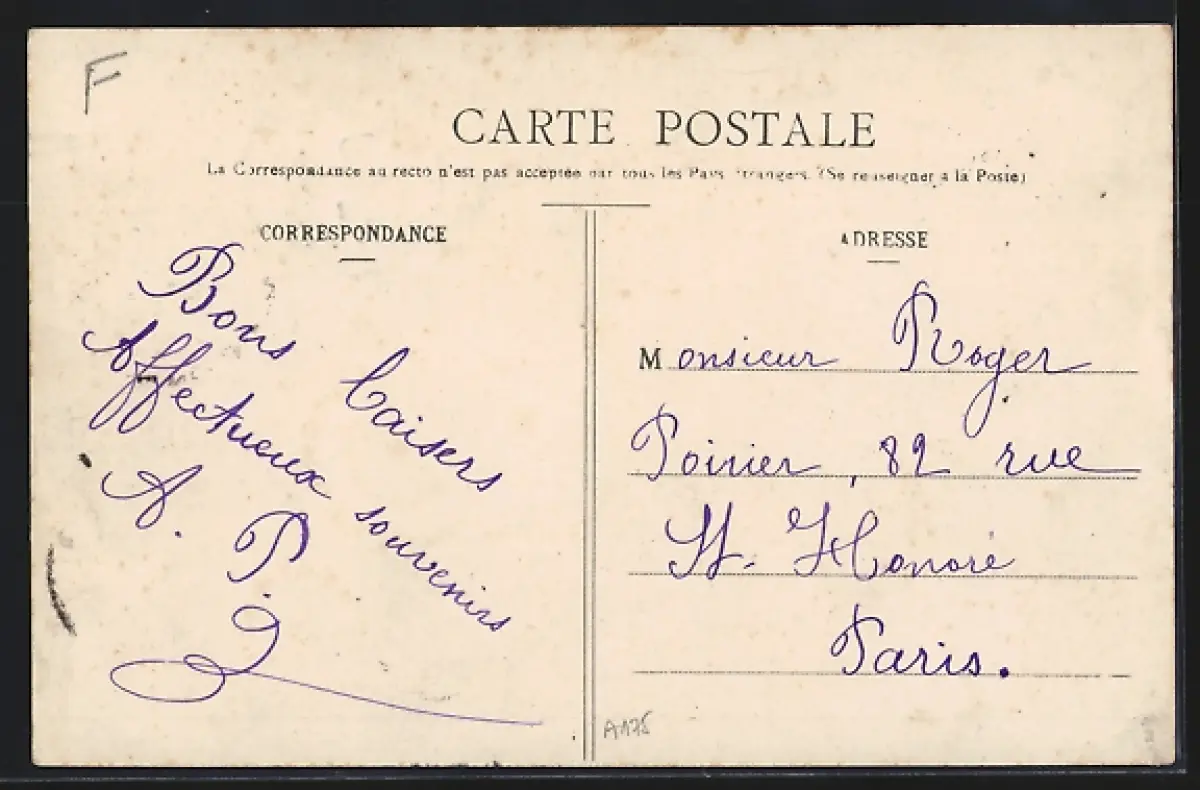 F
CARTE POSTALE
La Correspondance au recto n'est pas acceptée par tous les Pays étrangers. (Se renseigner à la Poste)
CORRESPONDANCE
ADRESSE
Bons baisers
Affectueux souvenirs
A. P.
Monsieur Roger
Poirier, 82 rue
St. Honoré
Paris.
A175